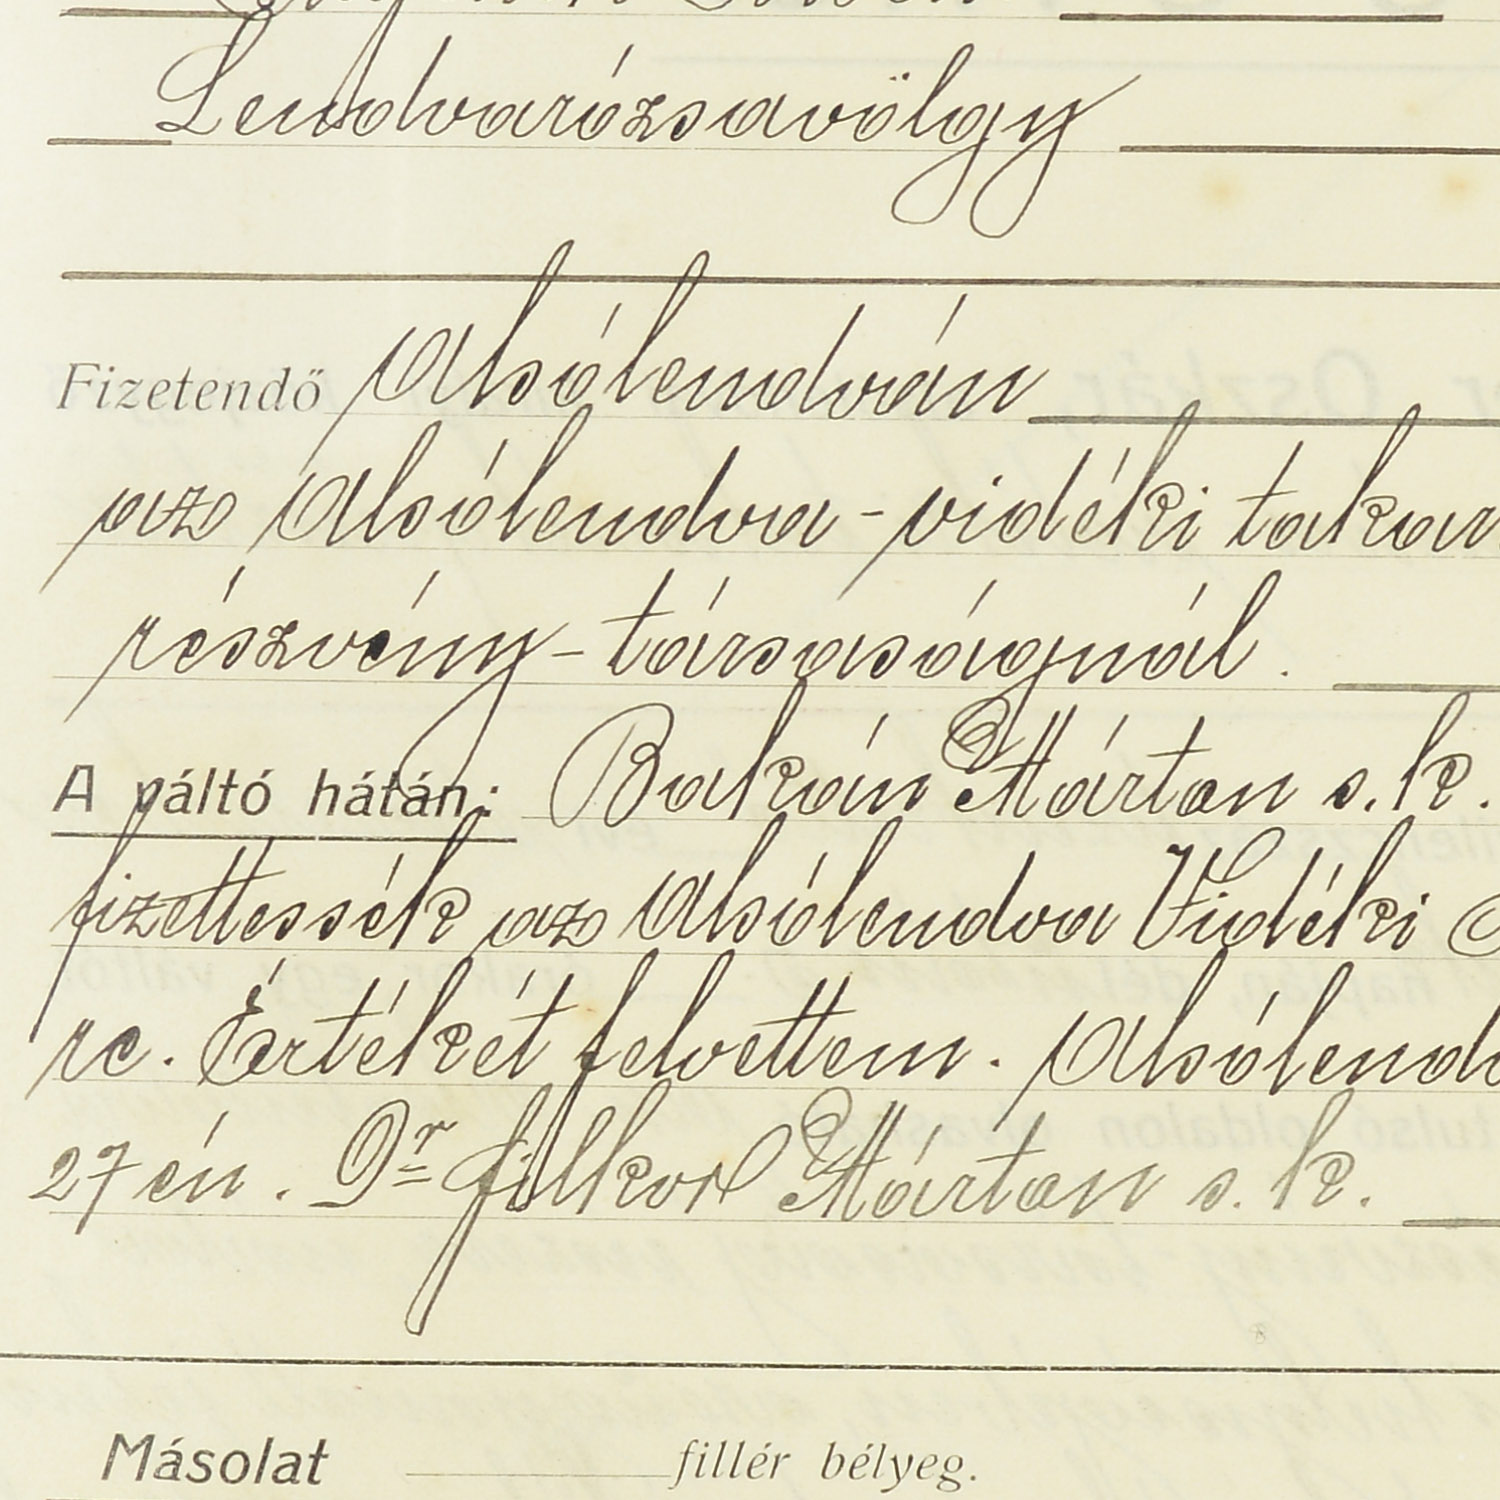 Lendvarózsavölgy
Fizetendő Alsólendván
az Alsólendva-vidéki takar
részvény-társaságnál.
A váltó hátán: Bakán Márton s. k.
fizettessék az Alsólendva Vidéki
re. Értékét felvettem. Alsólend
27 én. Dr Márton s. k.
Másolat fillér bélyeg.